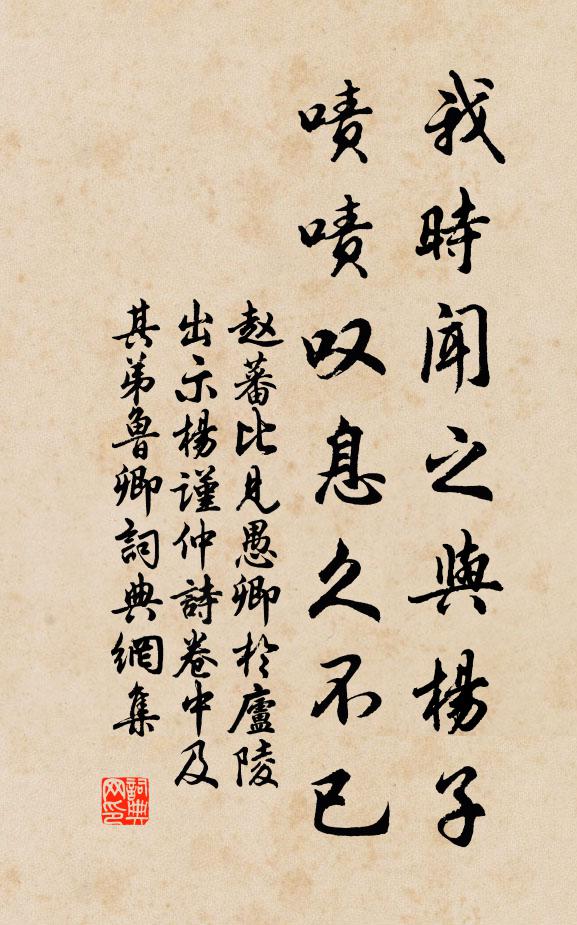 我時聞之與楊子
嘖嘖叹息久不已
赵蕃比見愚卿於廬陵
出示楊謹仲詩卷中及
其弟魯卿詞典網集
詞典網印